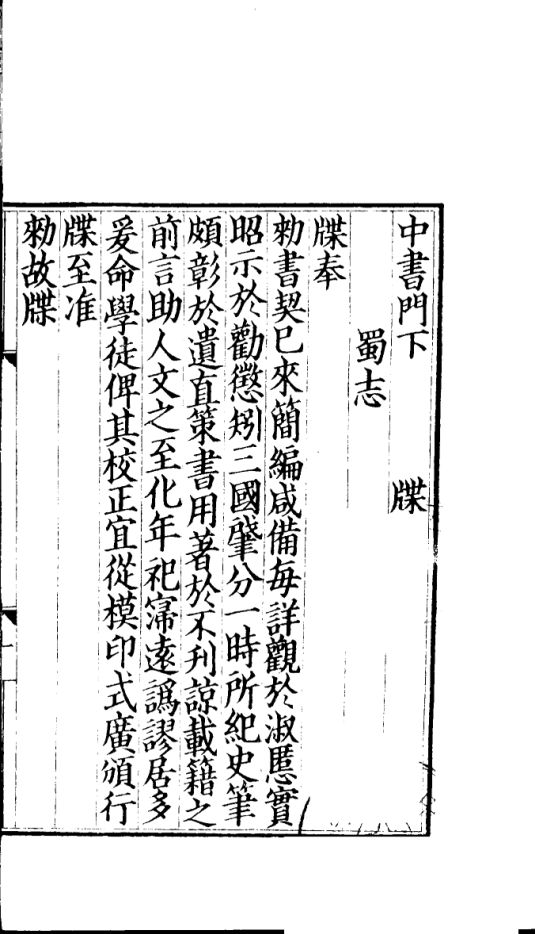 中書門下　牒
蜀志
牒奉
勑書契已來簡編咸備每詳觀於淑慝實
昭示於勸懲矧三國肇分一時所紀史筆
頗彰於遺直策書用著於不刋諒載籍之
前言助人文之至化年祀寖遠譌謬居多
爰命學徒俾其校正宜從模印式廣頒行
牒至准
勑故牒